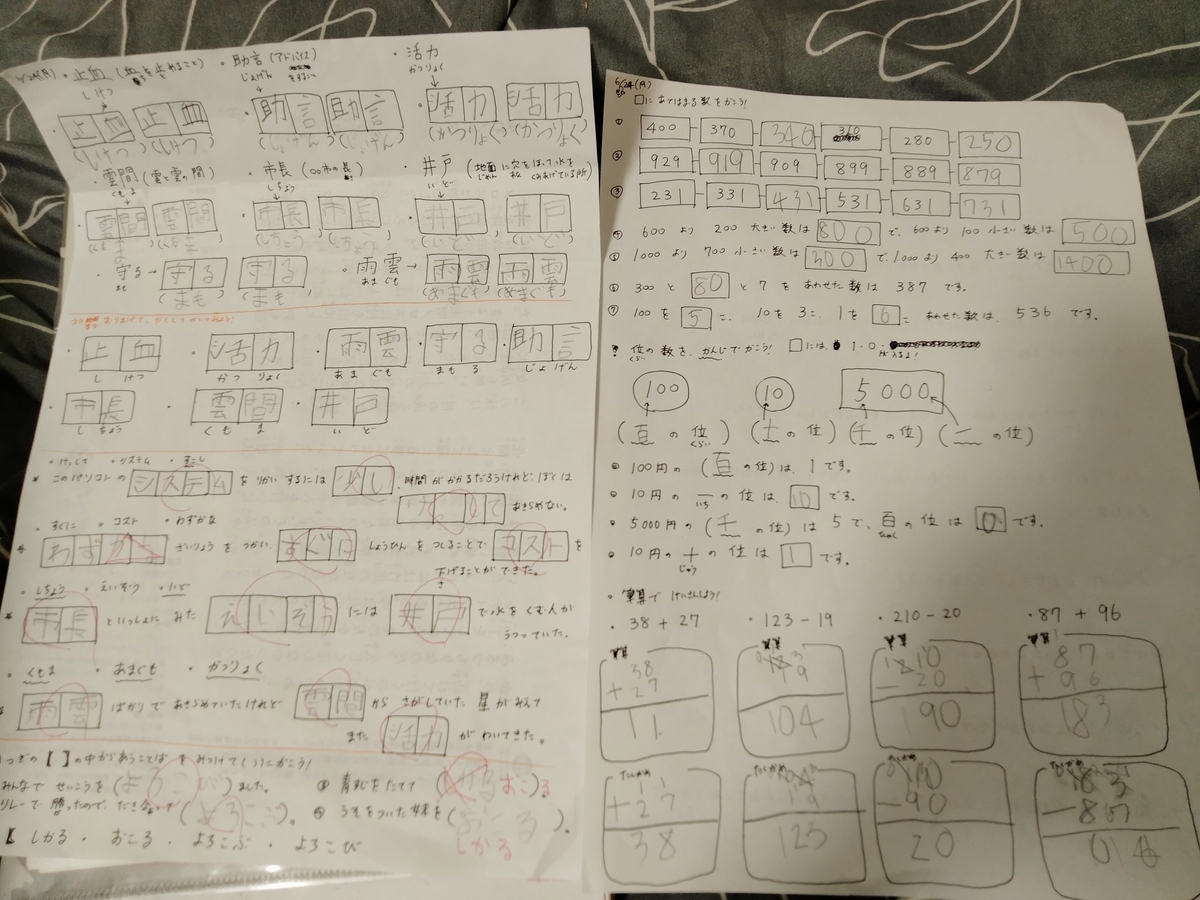 ・止血(血を止めること)
しけつ
・助言(アドバイス)
じょげん
・活力
かつりょく
止血 止血
(しけつ)(しけつ)
助言 助言
(じょげん)(じょげん)
活力 活力
(かつりょく)(かつりょく)
・雲間(雲と雲の間)
くもま
・市長(〇〇市の長)
しちょう
・井戸(地面に穴をほって、水をくみあげている所)
いど
雲間 雲間
(くもま)(くもま)
市長 市長
(しちょう)(しちょう)
井戸 井戸
(いど)(いど)
・守る→ 守る 守る
まも (まも)(まも)
・雨雲→ 雨雲 雨雲
あまぐも (あまぐも)(あまぐも)
・止血 ・活力 ・雨雲 ・守る ・助言
し けつ かつ りょく あま ぐも まも る じょ げん
・市長 ・雲間 ・井戸
し ちょう くも ま い ど
・けっして ・システム ・すこし
このパソコンの システム を りかい するには 少し 時間がかかるだろうけれど、ぼくは
けっして あきらめない。
・すぐに ・コスト ・わずかな
わずかな ざいりょう を つかい、 すぐに しょうひん を つくることで コスト を
下げることが できた。
・しちょう ・えいぞう ・いど
市長 といっしょに みた えいぞう には 井戸 で水を くむ人が
うつっていた。
・くもま ・あまぐも ・かつりょく
雨雲 ばかりで あきらめていたけれど 雲間 から さがしていた 星が みえて
また 活力 が わいてきた。
つぎの【 】の中からあうことばをみつけて( )にかこう!
みんなで せいこうを(よろこび)ました。
リレーで 勝ったので、(よろこぶ)。
おこる
(おこる)。
しかる
【 しかる ・ おこる ・ よろこぶ ・ よろこび
6/24(月)
□に あてはまる 数を かこう!
① 400 370 340 310 280 250
② 929 919 909 899 889 879
③ 231 331 431 531 631 731
④ 600 より 200 大きい 数は 800 で、600 より 100 小さい 数は 500
⑤ 1000 より 700 小さい 数は 300 で、1000 より 400 大きい 数は 1400
⑥ 300 と 80 と 7 を あわせた 数は 387 です。
⑦ 100を 5 こ、10を 3こ、1を 6 こ あわせた 数は、536 です。
位の数を、かんじでかこう! □には 1・0・
くらい が入るよ!
100 10 5000
(百の位) (十の位) (千の位) (一の位)
くらい
100円の (百の位)は、1です。
10円の 一の位は、10 です。
いち
5000円の (千の位)は 5で、百の位は 0 です。
ひゃく
10円の 十の位は 1 です。
じゅう
・筆算で けいさんしよう!
・38+27 ・123-19 ・210-20 ・87+96
38
+27
11
19
104
20
190
87
+96
183
たしかめ
11
+27
38
たしかめ
19
123
たしかめ
-90
20
たしかめ